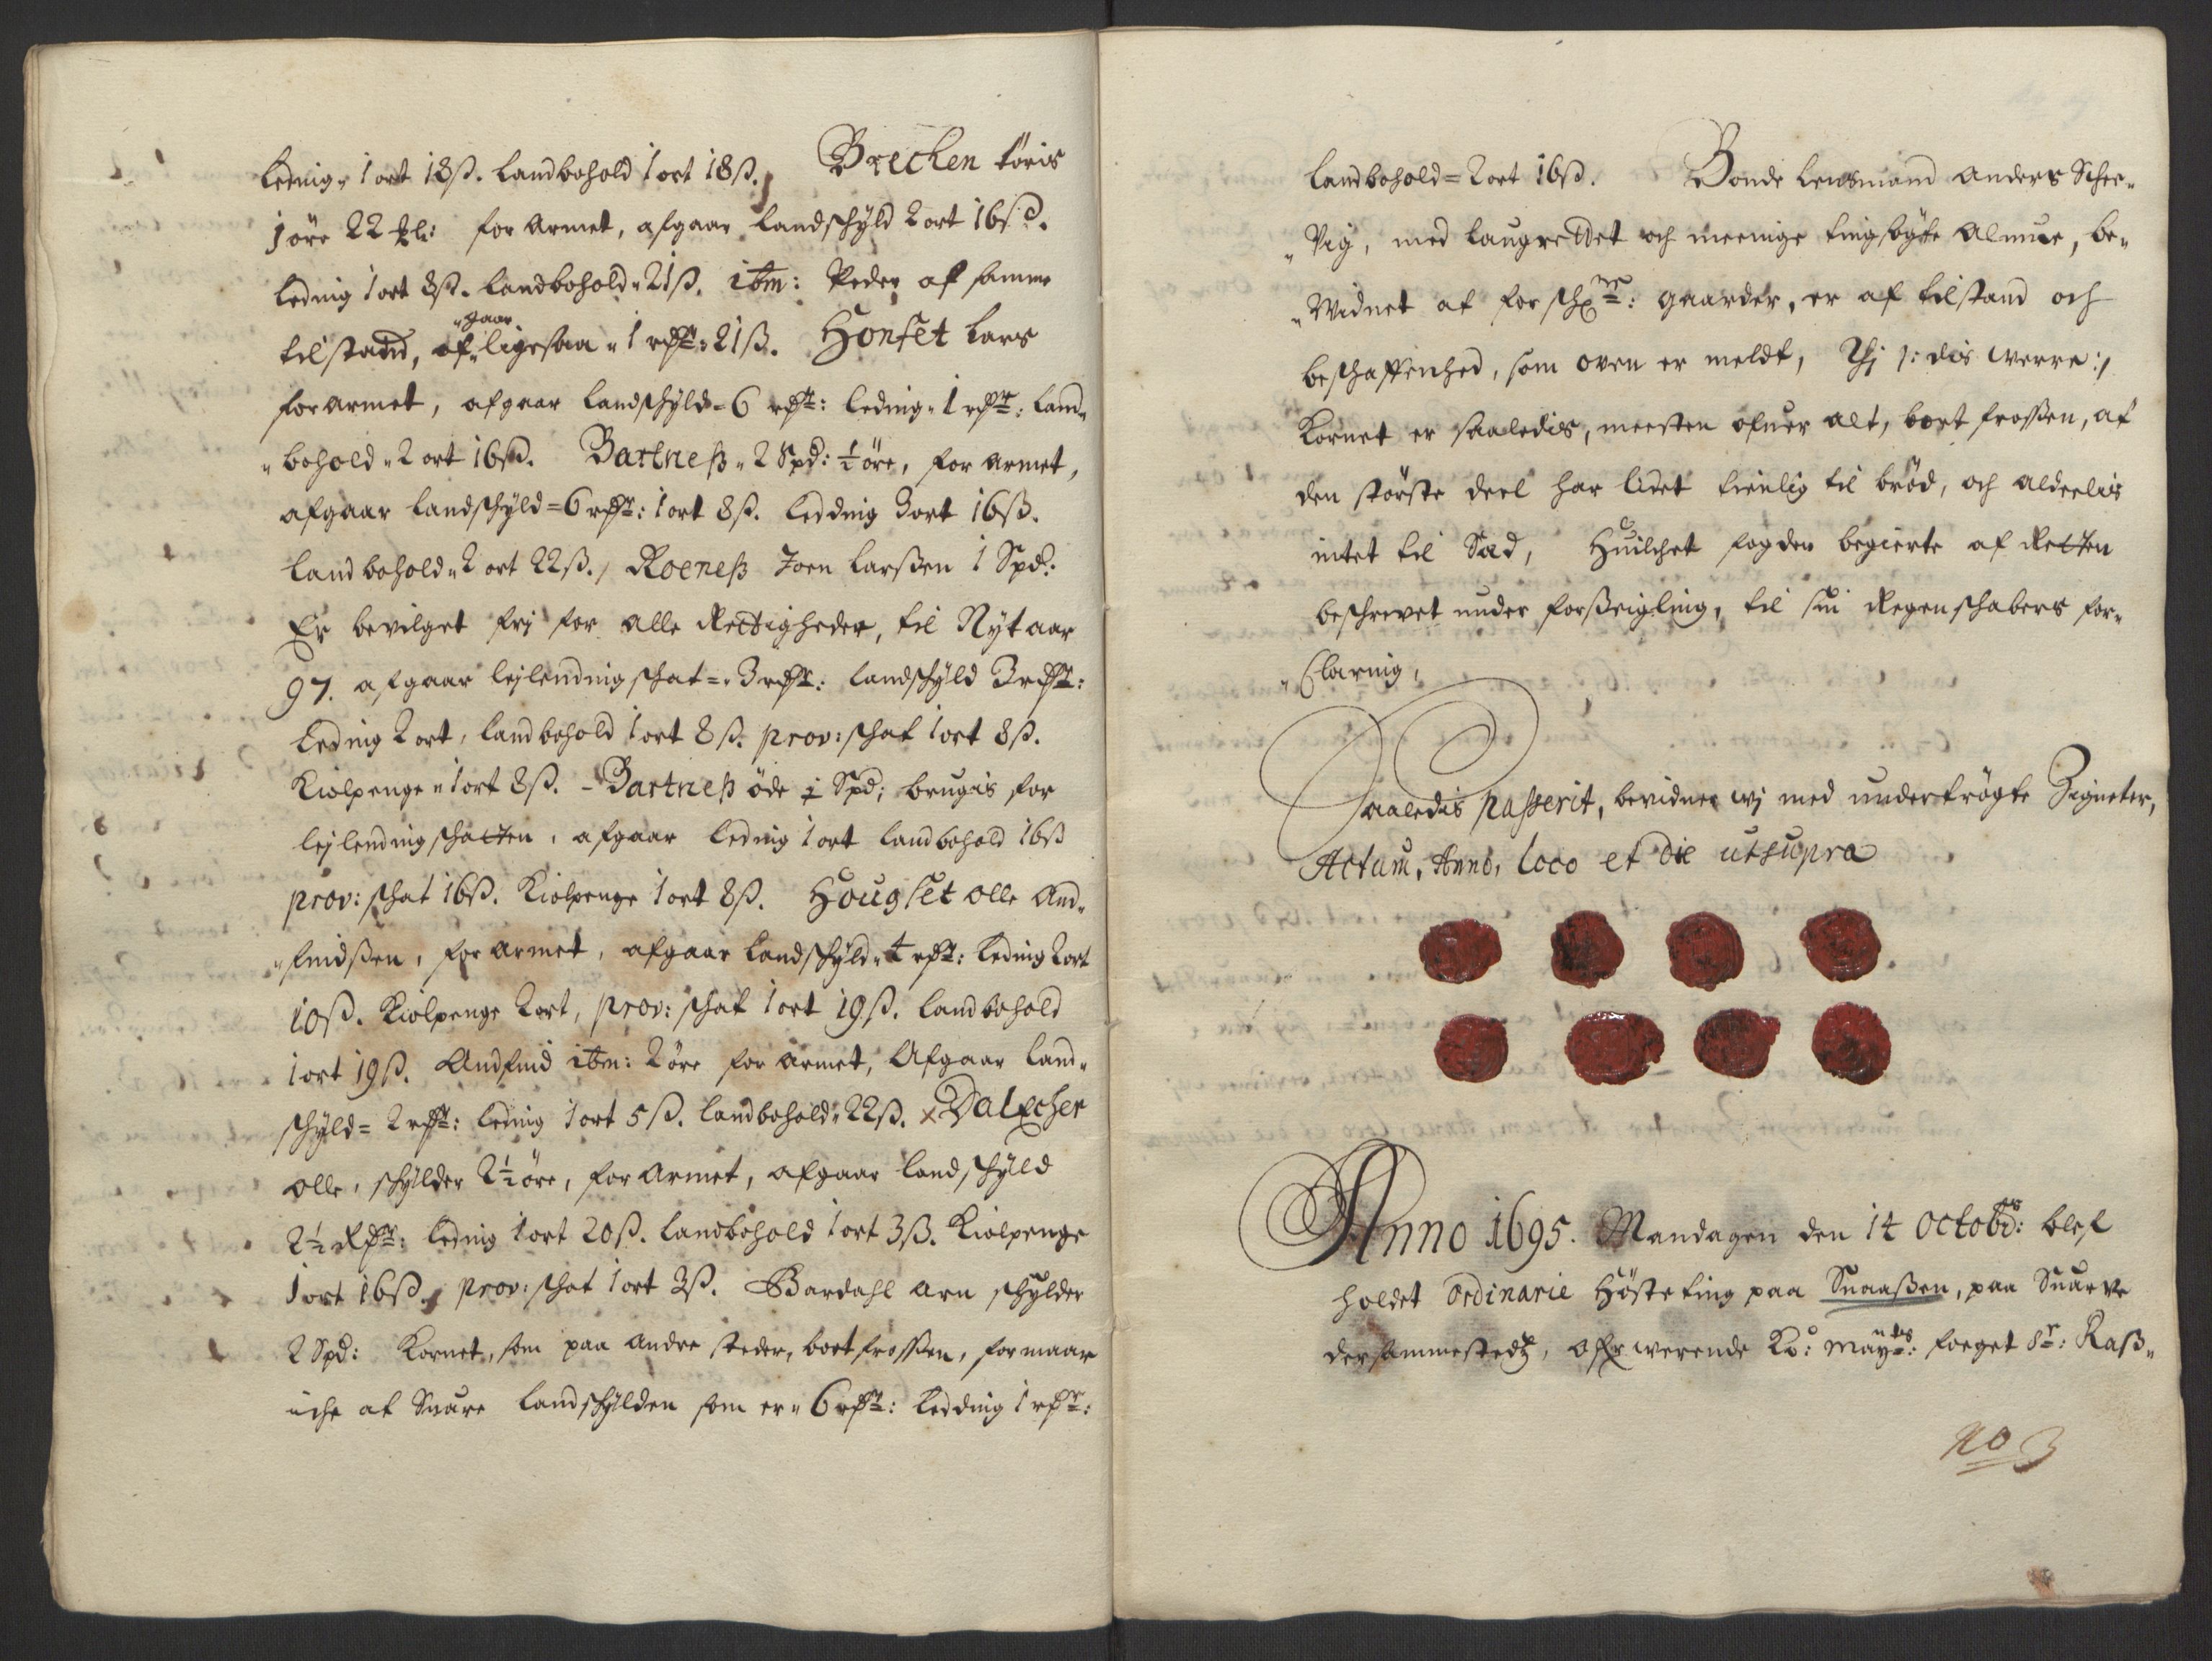 Leding„ 1 ort 18ß. Landbohold 1 ort 18ß., Brechen Töris
1 öre 22 kl: for armet, afgaar Landschyld 2 ort 16ß.
Leding 1 ort 8ß. Landbohold„ 21ß. ibm: Peder af samme
„gaar
tilstand, af„ ligesaa „ 1 rdr: 21ß. Honset Lars
for armet, afgaar Landschyld„ 6 rdr: leding„ 1 rdr: Land„
„bohold„ 2 ort 16ß. Bartneß„ 2 Spd: ½ öre, for armet,
afgaar Landschyld = 6 rdr: 1 ort 8ß. Ledding 3 ort 16ß.
Landbohold„ 2 ort 22ß., Roeneß Joen Larßen 1 Spd:
Er bevilget frj for alle Rettigheder, til Nytaar
97. afgaar lejlending schat =„ 3 rdr: Landschyld 3 rdr:
Leding 2 ort, Landbohold 1 ort 8ß. prov: schat 1 ort 8ß.
Kiölpenge „ 1 ort 8ß. – Bartneß öde ½ Spd; brugis for
lejlending schatten, afgaar Leding 1 ort Landbohold 16ß
prov: schat 16ß. Kiölpenge 1 ort 8ß. Hougset Olle And„
„findßen, for armet, afgaar Landschyld„ 4 rdr: Leding 2 ort
10ß. Kiölpenge 2 ort, prov: schat 1 ort 19ß. Landbohold
1 ort 19ß. Andfind ibm: 2 öre for armet, Afgaar Land„
schyld = 2 rdr: Leding 1 ort 5ß. Landbohold„ 22ß. × Dalecher
Olle, schylder 2½ öre, for armet, afgaar Landschyld
2½ Rdr: Leding 1 ort 20ß. Landbohold 1 ort 3ß. Kiölpenge
1 ort 16ß., prov: schat 1 ort 3ß. Bardahl Arn schylder
2 Spd: Kornet, som paa andre steder, bortfroßen, formaar
iche at Suare Landschylden som er„ 6 rdr: Ledding 1 rdr:
Landbohold = 2 ort 16ß. Bonde Lensmand Anders Schee„
„Vig, med Laugrettet och meenige tingsögte Almue, be„
„Widnet at forschne: gaarder, er af tilstand och
beschaffenhed, som oven er meldt, Thj /: dis werre :/
Kornet er saaledis, meesten ofuer alt, bort froßen, at
den störste deel har lidet tienlig til bröd, och aldeelis
intet til Sæd, Huilchet fogden begierte af Retten
beschrevet under forßeigling, til sin Regenschabers for„
„Claring,
Saaledis Passerit, bevidner wj med undertrögte Zigneter,
Actum, Anno, Loco et Die utsupra
Anno 1695. Mandagen den 14 Octobr: blef
holdet Ordinarie Hösteting paa Snaaßen, paa Suarve
dersammestedtz, ofverwerende Ko: Mayts: foeget Sr: Raß„
No 3